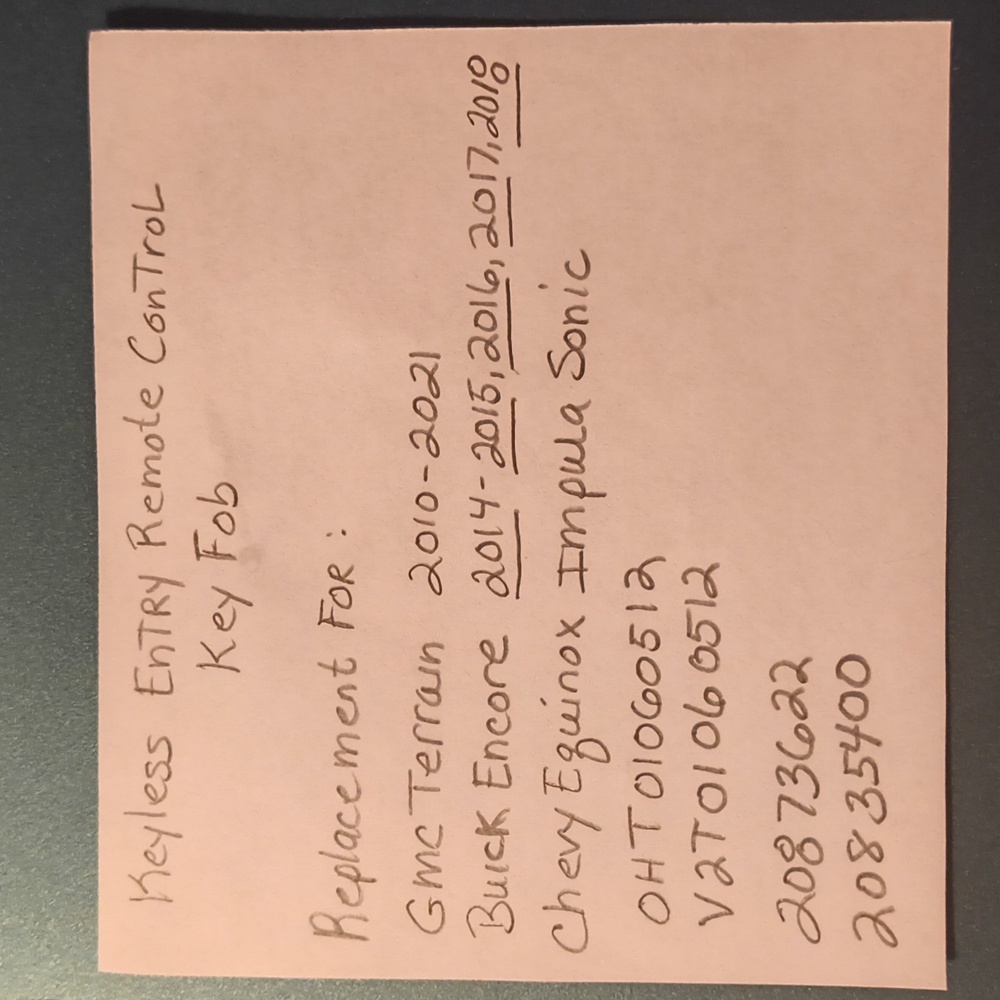 Keyless EnTRY Remote ConTroL
Key Fob
Replacement FOR:
Gmc Terran 2010-2021
Buick Encore 2014-2015, 2016, 2017, 2018
Chevy Equinox Impula Sonic
OHT01060512
V2T01060512
20873622
20835400